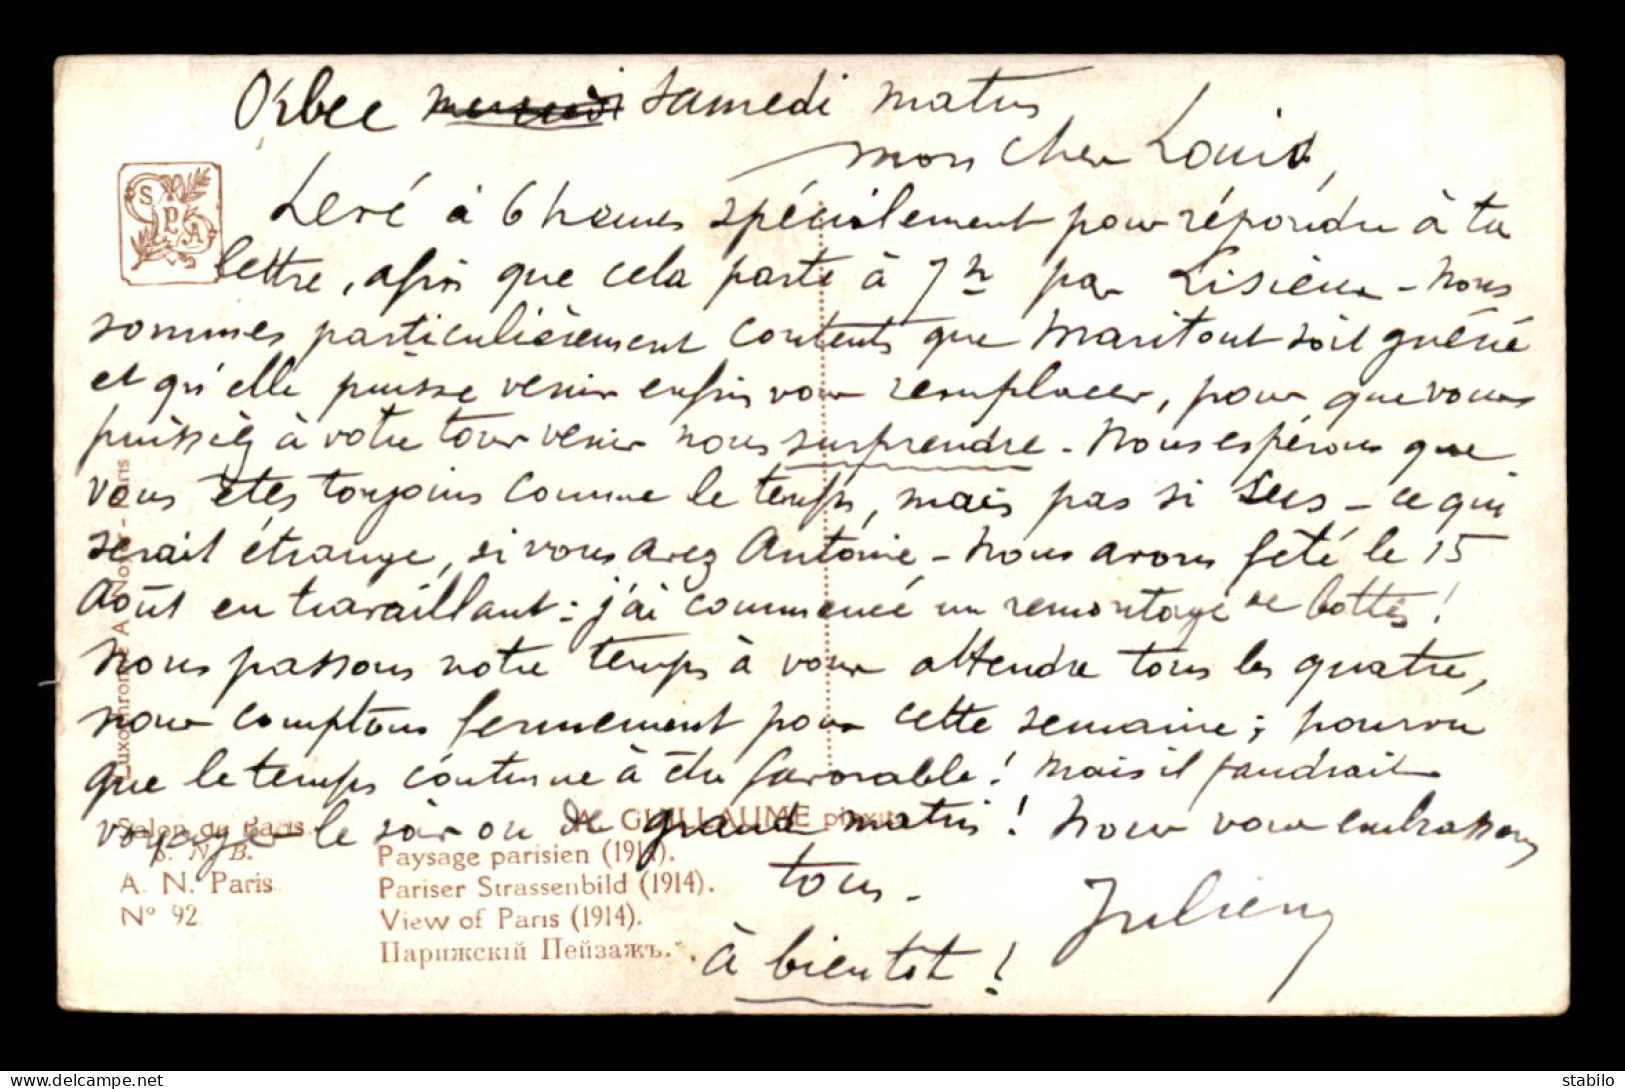 Orbec samedi matin
mon cher Louis,
Levé à 6 heures spécialement pour répondre à ta
lettre, afin que cela parte à 7h par Lisieux - Nous
sommes particulièrement contents que Maritout soit guérie
et qu'elle puisse venir enfin vous remplacer, pour que vous
puissiez à votre tour venir nous surprendre. Nous espérons que
vous êtes toujours comme le temps, mais pas si secs - ce qui
serait étrange, si vous avez Antoine - Nous avons fêté le 15
Août en travaillant : j'ai commencé un remontage de bottes !
Nous passons notre temps à vous attendre tous les quatre,
nous comptons fermement pour cette semaine ; pourvu
que le temps continue à être favorable ! Mais il faudrait
voyager le soir ou de grand matin ! Nous vous embrassons
tous.
Julien
à bientot !
SPA
Salon de Paris.
S. N. B.
A. N. Paris
N° 92
A. GUILLAUME pinxit
Paysage parisien (1914).
Pariser Strassenbild (1914).
View of Paris (1914).
Парижскій Пейзажъ.
Luxochromie A. Noyer - Paris
stabilo
delcampe.net